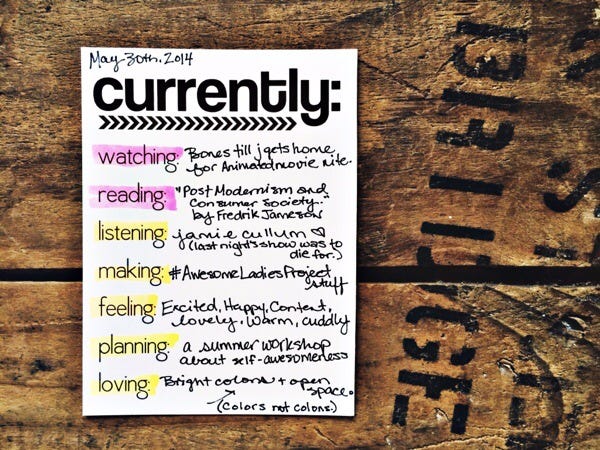 May 30th. 2014
currently:
>>>>>>>>>>>>>>>>>>>>>>>
watching: Bones till j gets home
for Animated movie nite.
reading: "Post Modernism and
Consumer Society.."
by Fredrik Jameson
listening: jamie cullum ♡
(last night's show was to
die for.)
making: #AwesomeLadiesProject
stuff
feeling: Excited, Happy, Content,
lovely. Warm, cuddly
planning: a summer workshop
about self-awesomeness
loving: Bright colons + open
space.
(colors not colons.)